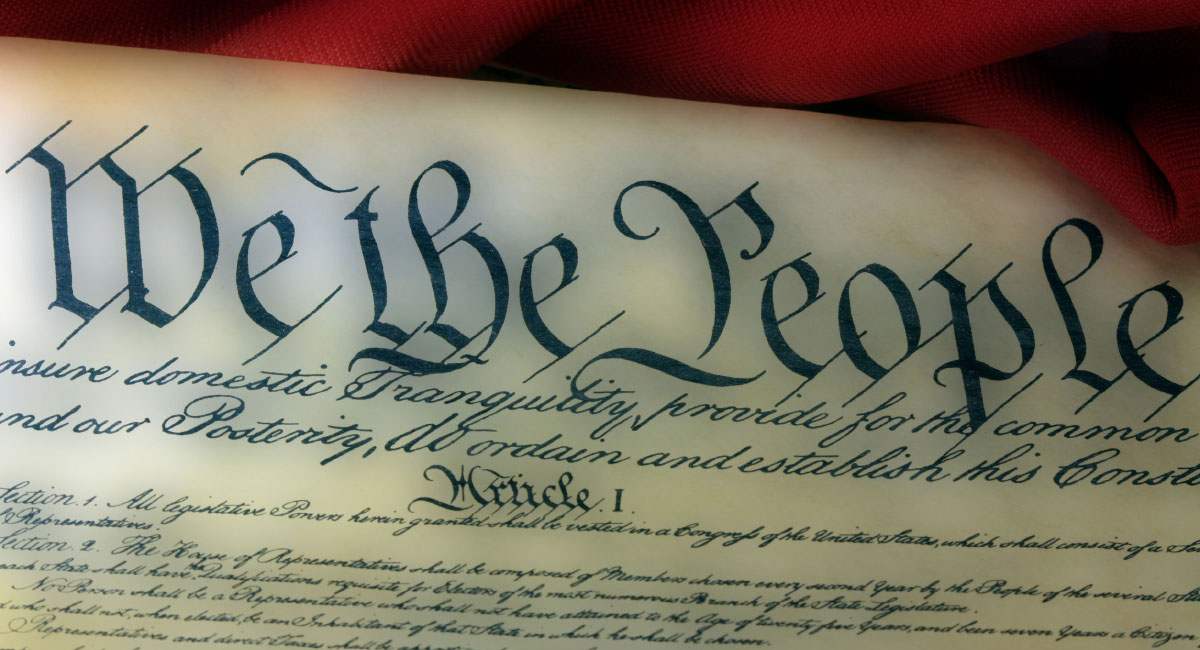 We the People
insure domestic Tranquility, provide for the common
and our Posterity, do ordain and establish this Const
Article. I.
Section. 1. All legislative Powers herein granted shall be vested in a Congress of the United States, which shall consist of a
Representatives.
Section. 2. The House of Representatives shall be composed of Members chosen every second Year by the People of the several
each State shall have the Qualifications requisite for Electors of the most numerous Branch of the State Legislature.
No Person shall be a Representative who shall not have attained to the Age of twenty five Years, and been seven Years a Citizen
who shall not, when elected, be an Inhabitant of that State in which he shall be chosen.
Representatives and direct Taxes shall be